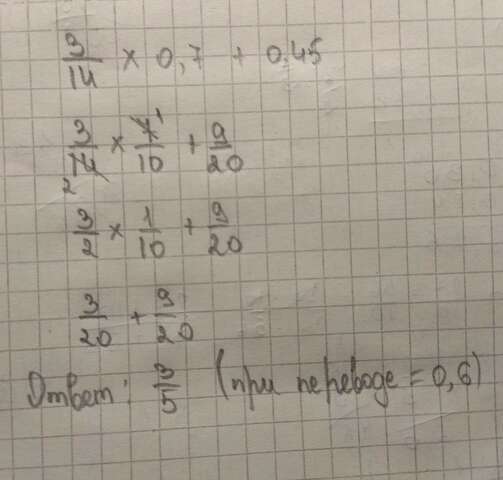 3/14 × 0,7 + 0,45
3/14 2 × 7 1/10 + 9/20
3/2 × 1/10 + 9/20
3/20 + 9/20
Ответ: 3/5 (при переводе = 0,6)